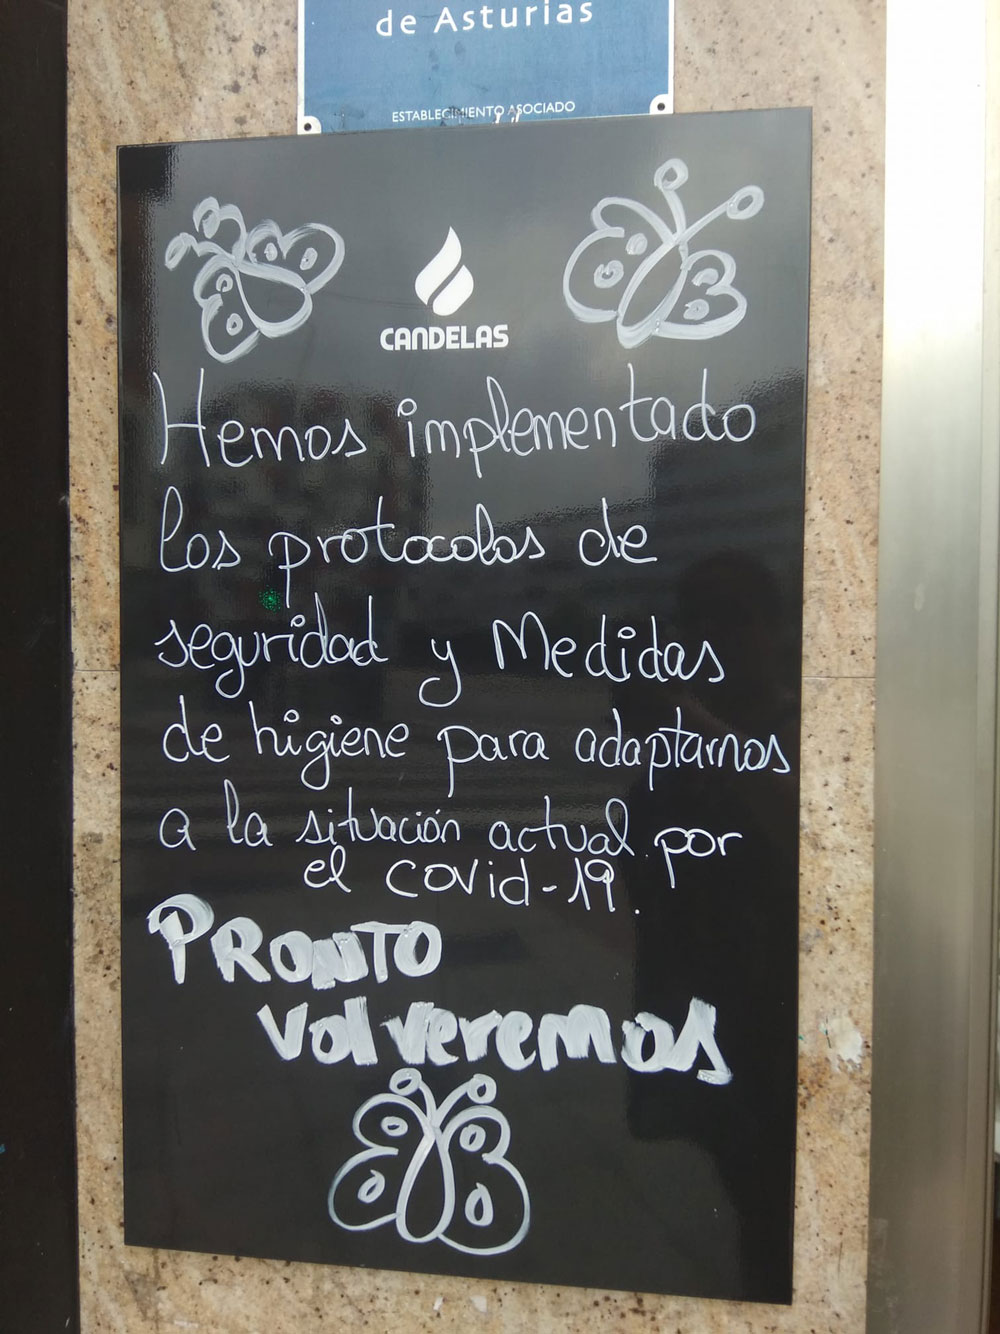 de Asturias
ESTABLECIMIENTO ASOCIADO
CANDELAS
Hemos implementado
los protocolos de
seguridad y Medidas
de higiene para adaptarnos
a la situación actual por
el covid-19.
PRONTO
volveremos